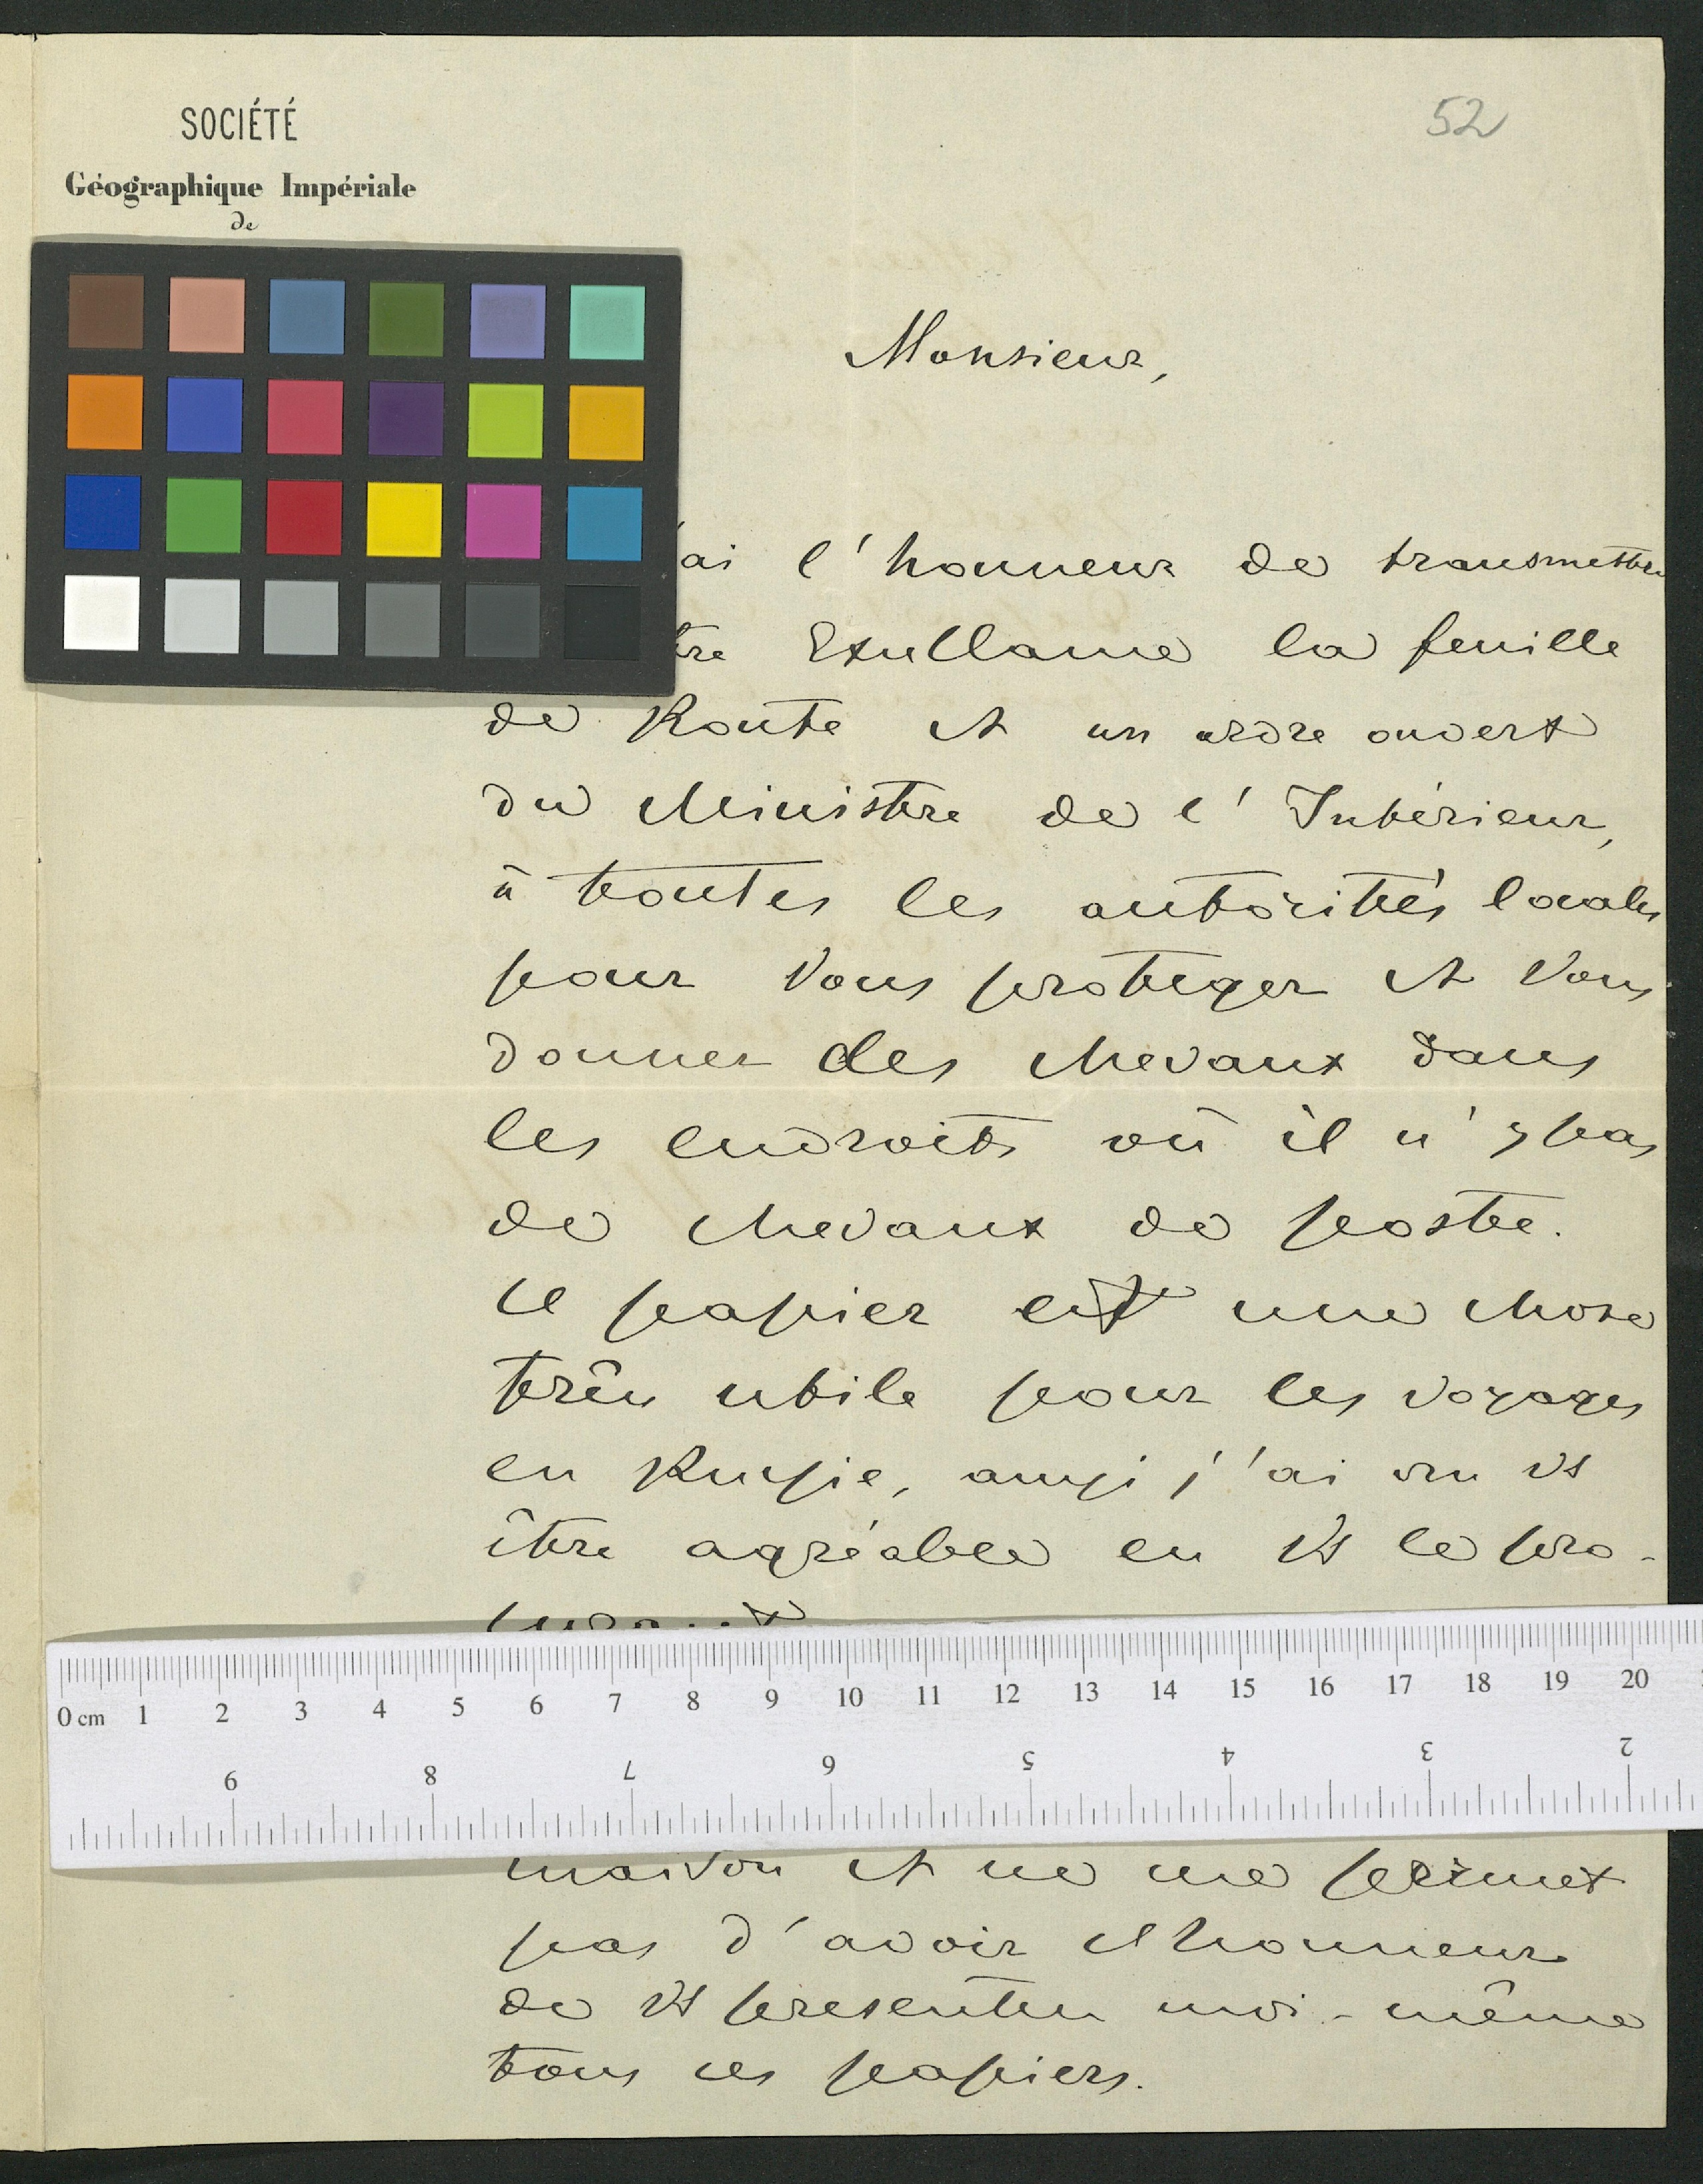 SOCIÉTÉ
52
Géographique Impériale
de
Monsieur,
'ai l'honneur de transmettre
tre Exellance la feuille
de Route et un ordre ouvert
du Ministre de l'Intérieur,
à toutes les autorités locales
pour Vous proteger et Vous
donner des chevaux dans
les endroits où il n'y pas
de chevaux de poste.
Ce papier est une chose
très utile pour les voyages
en Russie, aussi j'ai cru Vs
être agréable en Vs le pro-
0 cm 1 2 3 4 5 6 7 8 9 10 11 12 13 14 15 16 17 18 19 20
9 8 7 6 5 4 3 2
maison et ne me permet
pas d'avoir l'honneur
de Vs presenter moi-même
tous ces papiers.